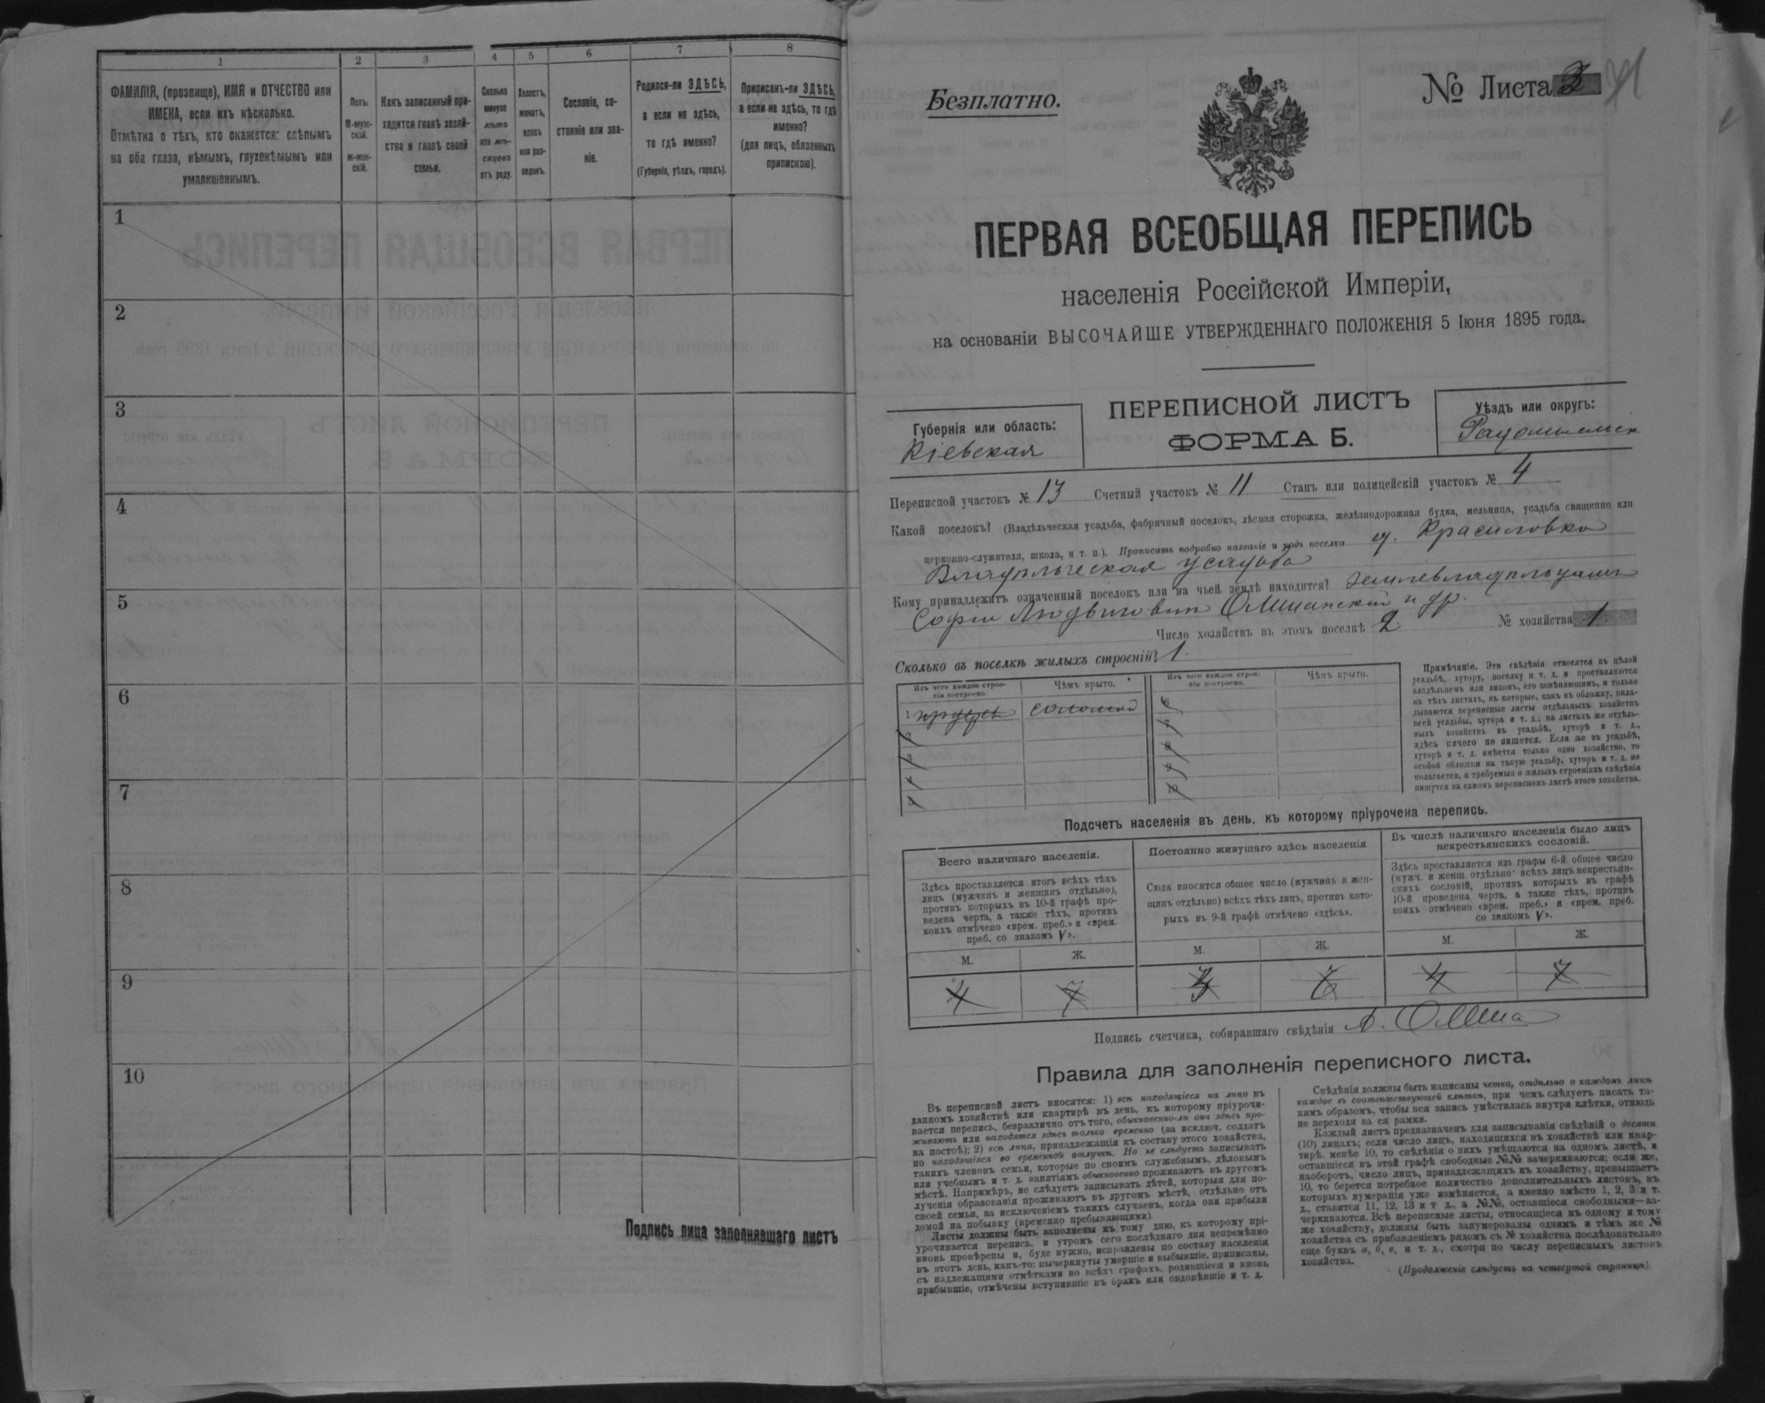 1 2 3 4 5 6 7 8
ФАМИЛІЯ, (прозвище), ИМЯ и ОТЧЕСТВО или
ИМЕНА, если ихъ нѣсколько.
Отмѣтка о тѣхъ, кто окажется: слѣпымъ
на оба глаза, нѣмымъ, глухонѣмымъ или
умалишеннымъ.
Полъ.
М-муж-
ской.
ж-жен-
скій.
Какъ записанный при-
ходится главѣ хозяй-
ства и главѣ своей
семьи.
Сколько
минуло
лѣтъ
или мѣ-
сяцевъ
отъ роду.
Холостъ,
женатъ,
вдовъ
или раз-
веденъ.
Сословіе, со-
стояніе или зва-
ніе.
Родился-ли ЗДѢСЬ,
а если не здѣсь,
то гдѣ именно?
(Губернія, уѣздъ, городъ).
Приписанъ-ли ЗДѢСЬ,
а если не здѣсь, то гдѣ
именно?
(для лицъ, обязанныхъ
припискою).
1
2
3
4
5
6
7
8
9
10
Подпись лица заполнявшаго листъ
Безплатно.
№ Листа 3
ПЕРВАЯ ВСЕОБЩАЯ ПЕРЕПИСЬ
населенія Россійской Имперіи,
на основаніи ВЫСОЧАЙШЕ УТВЕРЖДЕННАГО ПОЛОЖЕНІЯ 5 Іюня 1895 года.
Губернія или область:
Кіевская
ПЕРЕПИСНОЙ ЛИСТЪ
ФОРМА Б.
Уѣздъ или округъ:
Радомысльск
Переписной участокъ № 13 Счетный участокъ № 11 Станъ или полицейскій участокъ № 4
Какой поселокъ? (Владѣльческая усадьба, фабричный поселокъ, лѣсная сторожка, желѣзнодорожная будка, мельница, усадьба священно или
церковно-служителя, школа, и т. п.). Прописать подробно названіе и родъ поселка д. Красиловка
Владѣльческая усадьба
Кому принадлежитъ означенный поселокъ или на чьей землѣ находится? землевладѣльцамъ
Софіи Людвиговнѣ Олшанской и др.
Число хозяйствъ въ этомъ поселкѣ 2 № хозяйства 1
Сколько въ поселкѣ жилыхъ строеній? 1.
Изъ чего каждое строе-
ніе построено.
Чѣмъ крыто.
Изъ чего каждое строе-
ніе построено.
Чѣмъ крыто.
1 дерев. соломой
Примѣчаніе. Эти свѣдѣнія относятся къ цѣлой
усадьбѣ, хутору, поселку и т. д. и проставляются
владѣльцемъ или лицомъ, его замѣняющимъ, и только
на тѣхъ листахъ, въ которые, какъ въ обложку, вкла-
дываются переписные листы отдѣльныхъ хозяйствъ
всей усадьбы, хутора и т. д.; на листахъ же отдѣль-
ныхъ хозяйствъ въ усадьбѣ, хуторѣ и т. д.,
здѣсь ничего не пишется. Если же въ усадьбѣ,
хуторѣ и т. д. имѣется только одно хозяйство, то
особой обложки на такую усадьбу, хуторъ и т. д. не
полагается, а требуемыя о жилыхъ строеніяхъ свѣдѣнія
пишутся на самомъ переписномъ листѣ этого хозяйства.
Подсчетъ населенія въ день, къ которому пріурочена перепись.
Всего наличнаго населенія.
Здѣсь проставляется итогъ всѣхъ тѣхъ
лицъ (мужчинъ и женщинъ отдѣльно),
противъ которыхъ въ 10-й графѣ про-
ведена черта, а также тѣхъ, противъ
коихъ отмѣчено «врем. преб.» и «врем.
преб. со знакомъ V».
Постоянно живущаго здѣсь населенія
Сюда вносится общее число (мужчинъ и жен-
щинъ отдѣльно) всѣхъ тѣхъ лицъ, противъ кото-
рыхъ въ 9-й графѣ отмѣчено «здѣсь».
Въ числѣ наличнаго населенія было лицъ
некрестьянскихъ сословій.
Здѣсь проставляется изъ графы 6-й общее число
(мужч. и женщ. отдѣльно) всѣхъ лицъ некрестьян-
скихъ сословій, противъ которыхъ въ графѣ
10-й проведена черта, а также тѣхъ, противъ
коихъ отмѣчено «врем. преб.» и «врем. преб.
со знакомъ V».
М. Ж. М. Ж. М. Ж.
4 7 3 4 7
Подпись счетчика, собиравшаго свѣдѣнія
Правила для заполненія переписного листа.
Въ переписной листъ вносятся: 1) всѣ находящіеся на лицо въ
данномъ хозяйствѣ или квартирѣ въ день, къ которому пріурочи-
вается перепись, безразлично отъ того, обыкновенно-ли они здѣсь про-
живаютъ или находятся здѣсь только временно (за исключ. солдатъ
на постоѣ); 2) всѣ лица, принадлежащія къ составу этого хозяйства,
но находящіяся во временной отлучкѣ. Но не слѣдуетъ записывать
такихъ членовъ семьи, которые по своимъ служебнымъ, дѣловымъ
или учебнымъ и т. д. занятіямъ обыкновенно проживаютъ въ другомъ
мѣстѣ. Напримѣръ, не слѣдуетъ записывать дѣтей, которыя для по-
лученія образованія проживаютъ въ другомъ мѣстѣ, отдѣльно отъ
своей семьи, за исключеніемъ такихъ случаевъ, когда они прибыли
домой на побывку (временно пребывающими).
Листы должны быть заполнены къ тому дню, къ которому прі-
урочивается перепись, и утромъ сего послѣдняго дня непремѣнно
вновь провѣрены и, буде нужно, исправлены по составу населенія
въ этотъ день, какъ-то: вычеркнуты умершіе и выбывшіе, приписаны,
съ надлежащими отмѣтками во всѣхъ графахъ, родившіеся и вновь
прибывшіе, отмѣчены вступившіе въ бракъ или овдовѣвшіе и т. д.
Свѣдѣнія должны быть написаны четко, отдѣльно о каждомъ лицѣ
каждое въ соотвѣтствующей клѣткѣ, при чемъ слѣдуетъ писать та-
кимъ образомъ, чтобы вся запись умѣстилась внутри клѣтки, отнюдь
не переходя за ея рамки.
Каждый листъ предназначенъ для записыванія свѣдѣній о десяти
(10) лицахъ; если число лицъ, находящихся въ хозяйствѣ или квар-
тирѣ, менѣе 10, то свѣдѣнія о нихъ умѣщаются на одномъ листѣ, и
оставшіеся въ этой графѣ свободные №№ зачеркиваются; если же,
наоборотъ, число лицъ, принадлежащихъ къ хозяйству, превышаетъ
10, то берется потребное количество дополнительныхъ листовъ, въ
которыхъ нумерація уже измѣняется, а именно вмѣсто 1, 2, 3 и т.
д., ставится 11, 12, 13 и т д., а №№, оставшіеся свободными—за-
черкиваются. Всѣ переписные листы, относящіеся къ одному и тому
же хозяйству, должны быть занумерованы однимъ и тѣмъ же №
хозяйства съ прибавленіемъ рядомъ съ № хозяйства послѣдовательно
еще буквъ а, б, в, и т. д., смотря по числу переписныхъ листовъ
хозяйства.
(Продолженіе слѣдуетъ на четвертой страницѣ).